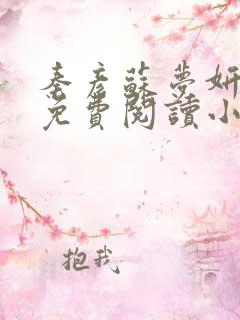 秦彥蘇夢妍
免費閱讀小
抱我